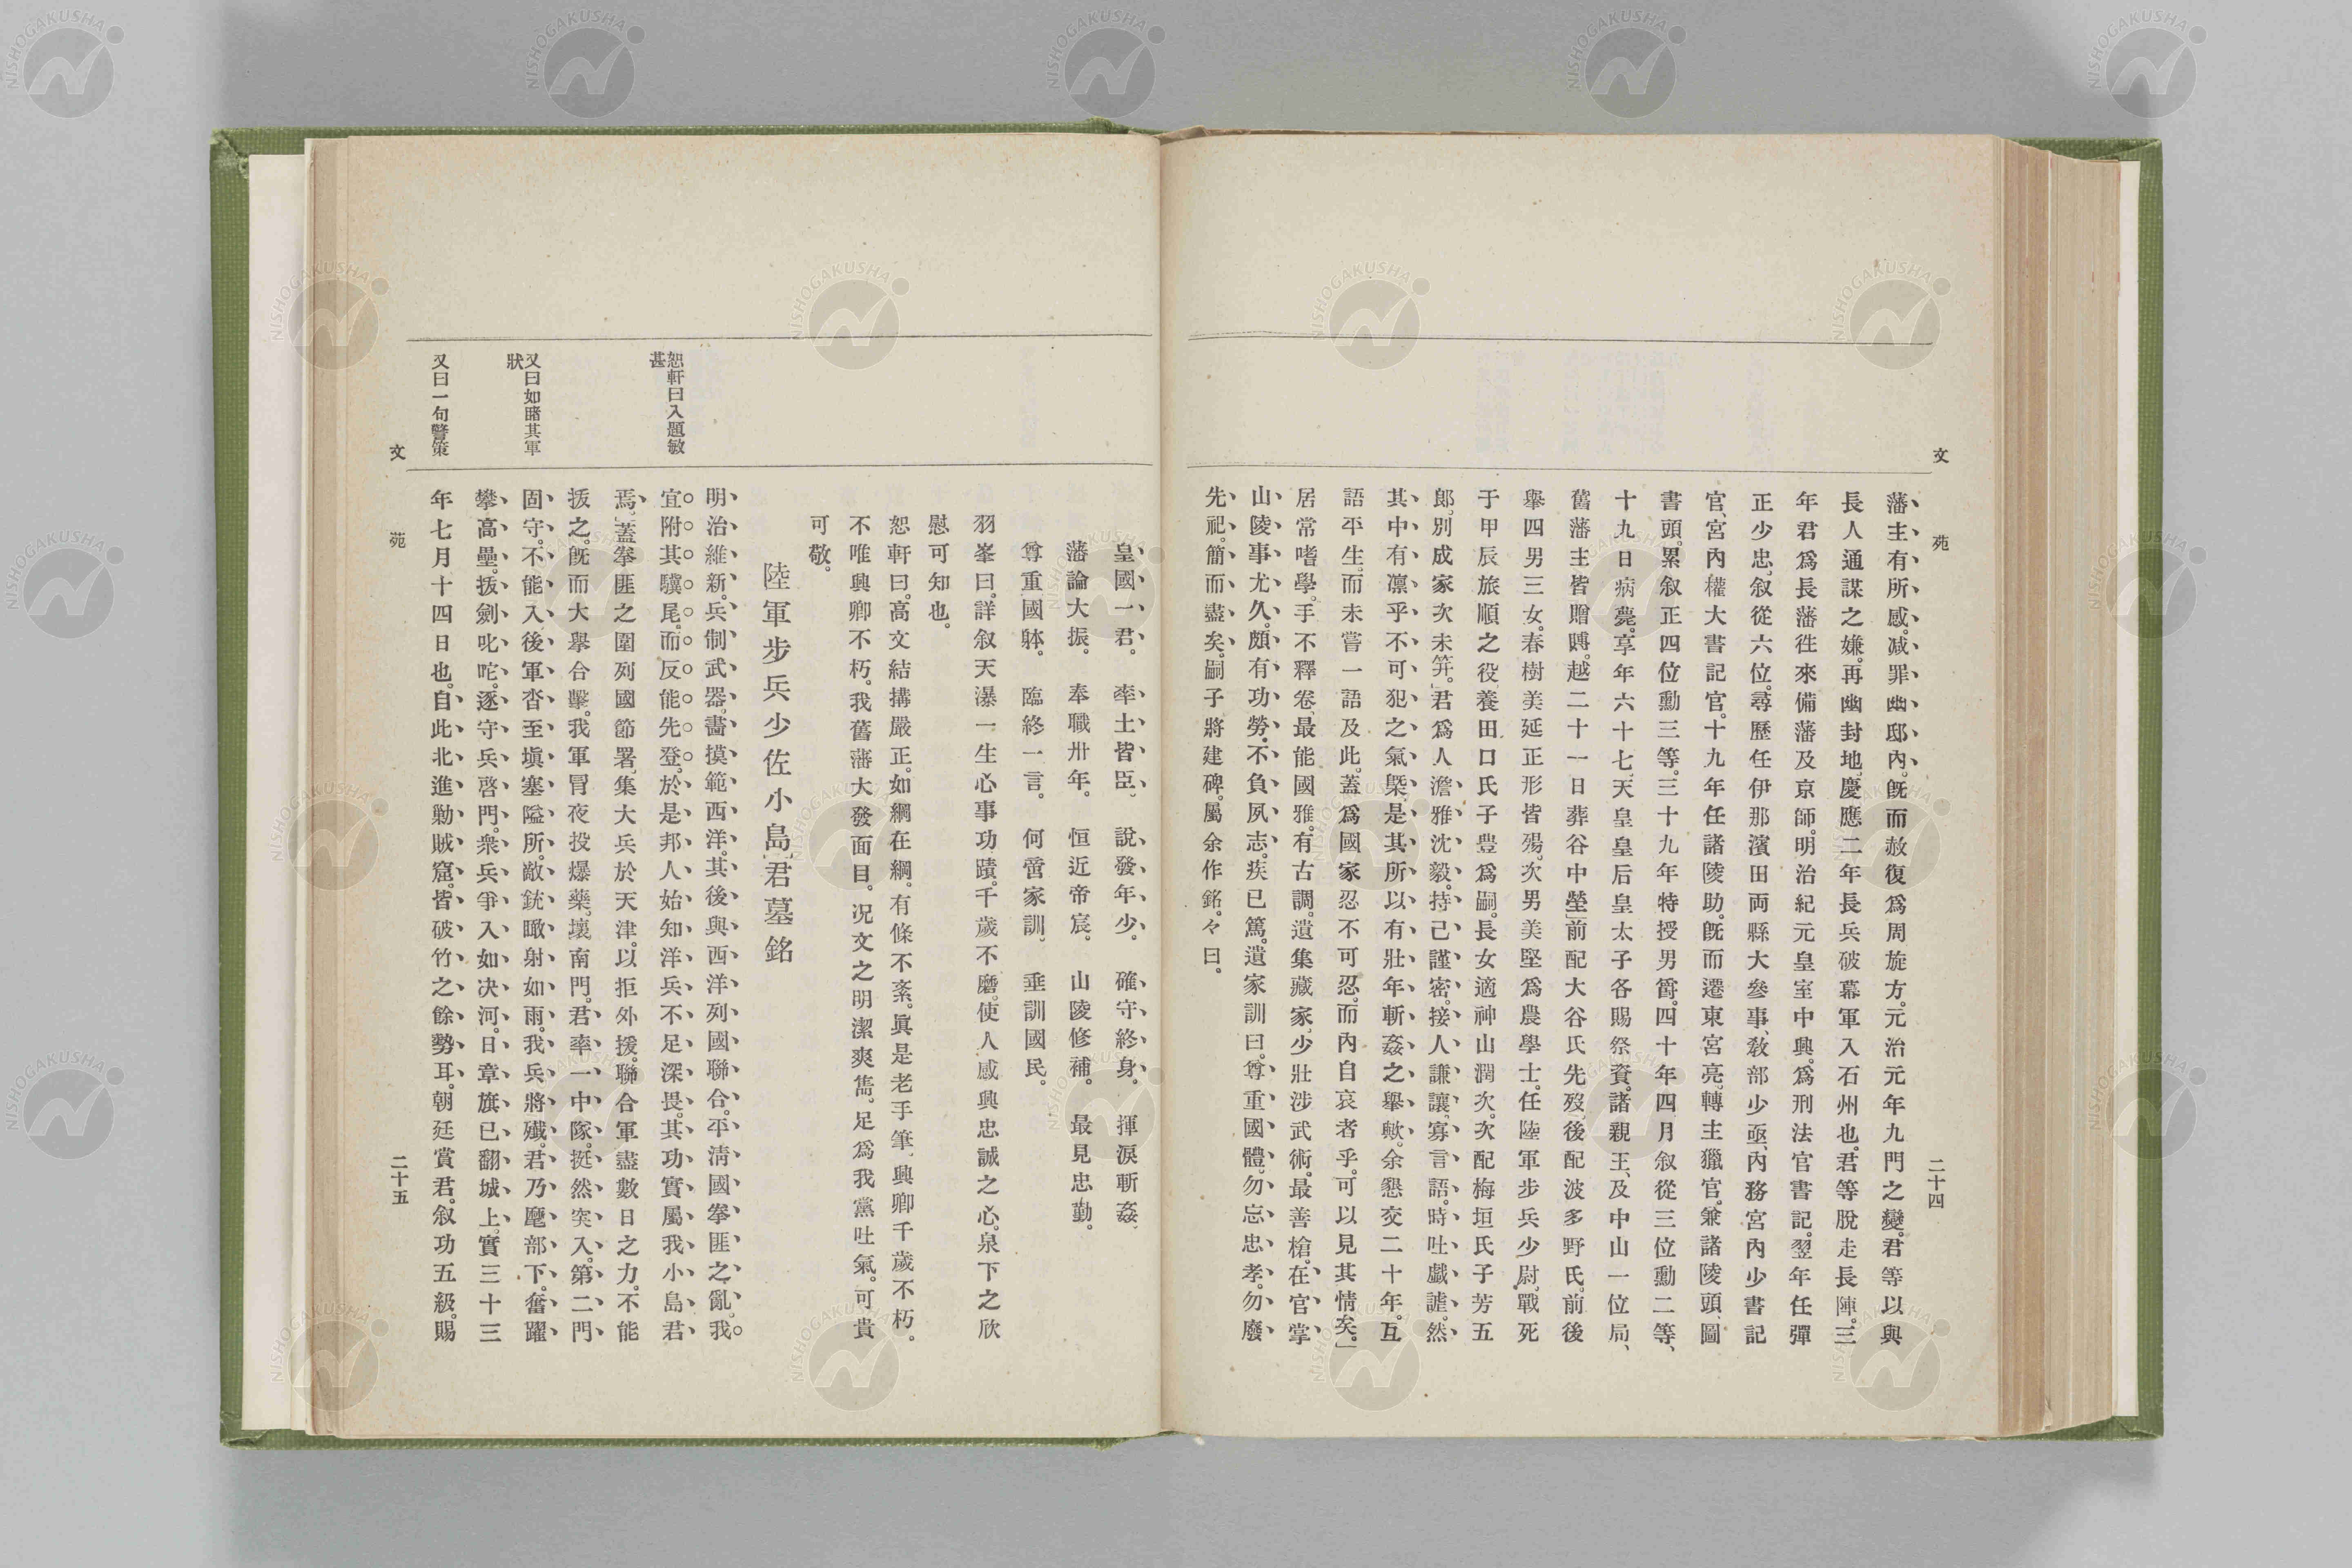 文 苑
二十四
藩主有所感。减罪幽邸內。旣而赦復爲周旋方。元治元年九門之變。君等以與
長人通謀之嫌。再幽封地。慶應二年長兵破幕軍入石州也。君等脫走長陣。三
年君爲長藩徃來備藩及京師。明治紀元皇室中興。爲刑法官書記。翌年任彈
正少忠。叙從六位。尋歷任伊那濱田両縣大參事、敎部少亟、內務宮內少書記
官、宮內權大書記官。十九年任諸陵助。旣而遷東宮亮、轉主獵官。兼諸陵頭、圖
書頭。累叙正四位勳三等。三十九年特授男爵。四十年四月叙從三位勳二等、
十九日病薨。享年六十七、天皇皇后皇太子各賜祭資。諸親王、及中山一位局、
舊藩主皆贈賻。越二十一日葬谷中塋」前配大谷氏先歿、後配波多野氏。前後
擧四男三女。春樹美延正形皆殤。次男美堅爲農學士。任陸軍步兵少尉。戰死
于甲辰旅順之役、養田口氏子豊爲嗣。長女適神山潤次。次配梅垣氏子芳五
郎。別成家次未笄。」君爲人澹雅沈毅。持己謹密。接人謙讓、寡言語。時吐戲謔。然
其中有凛乎不可犯之氣槩。是其所以有壯年斬姦之擧歟。余懇交二十年。互
語平生。而未嘗一語及此。蓋爲國家忍不可忍。而內自哀者乎。可以見其情矣。」
居常嗜學。手不釋卷、最能國雅。有古調。遺集藏家、少壯涉武術。最善槍。在官掌
山陵事尤久。頗有功勞。不負夙志。疾已篤。遺家訓曰。尊重國體。勿忘忠孝。勿廢
先祀。簡而盡矣。嗣子將建碑。屬余作銘。々曰。
皇國一君。 率土皆臣、 說發年少。 確守終身。 揮淚斬姦、
藩論大振。 奉職卅年。 恒近帝宸。 山陵修補。 最見忠勤。
尊重國躰。 臨終一言。 何啻家訓、 垂訓國民。
羽峯曰。詳叙天瀑一生心事功蹟。千歲不磨。使人感興忠誠之心。泉下之欣
慰可知也。
恕軒曰。高文結搆嚴正。如綱在綱。有條不紊。眞是老手筆、興卿千歲不朽。
不唯興卿不朽。我舊藩大發面目。况文之明潔爽雋。足爲我黨吐氣。可貴
可敬。
陸軍步兵少佐小島」君墓銘
恕軒曰入題敏
甚
明治維新。兵制武器。畵摸範西洋。其後與西洋列國聯合。平淸國拳匪之亂。我
宜附其驥尾。而反能先登。於是邦人始知洋兵不足深畏。其功實屬我小島君
焉。」蓋拳匪之圍列國節署、集大兵於天津。以拒外援。聯合軍盡數日之力。不能
又曰如睹其軍
狀
拔之。旣而大擧合擊。我軍冒夜投爆藥。壞南門。君率一中隊。挺然突入。第二門
固守。不能入、後軍沓至塡塞隘所。敵銃瞰射如雨。我兵將殲。君乃麾部下。奮躍
攀高壘。拔劍叱咜。逐守兵啓門。衆兵爭入如決河。日章旗已翻城上。實三十三
又曰一句警策
年七月十四日也。自此北進勦賊窟。皆破竹之餘勢耳。朝廷賞君。叙功五級。賜
文 苑
二十五